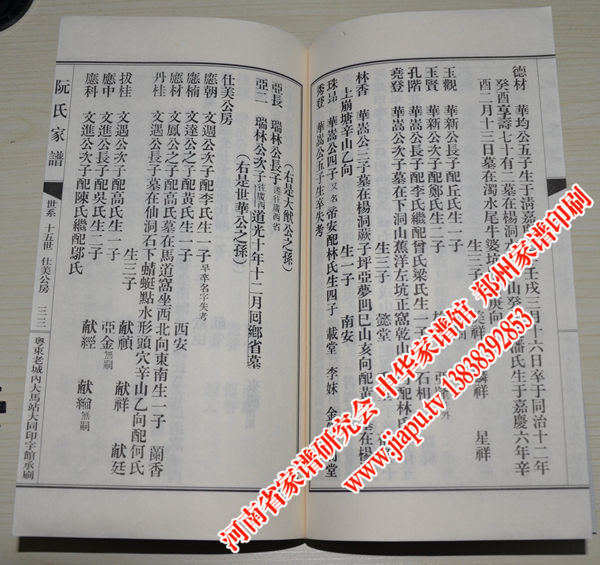 德材 華均公五子生于清嘉慶
壬戌三月十六日卒于同治十二年
癸酉享壽七十有二墓在楊洞
潘氏生于嘉慶六年辛
酉二月十三日墓在濁水尾牛婆坑
生三子
星祥
玉觀 華新公長子配丘氏生一子
玉賢 華新公次子配鄭氏生二子
孔階 華嵩公長子配李氏繼配曾氏梁氏生一子 石相
堯登 華嵩公次子墓在下洞山蕉洋左坑正窩乾山
配林氏
生三子 懿堂
林香 華嵩公三子墓在楊洞蕨子坪亞婆凹巳山亥向配黃
墓在楊
上廟塘辛山乙向 生一子 南安
珠昂 華嵩公四子又名帝安配林氏生四子 載堂 李妹 金
秀登 華嵩公五子生卒失考
(右是大猷公之孫)
亞長 瑞林公長子遷往廣西省
亞二 瑞林公次子往廣西道光十年十二月回鄉省墓
(右是世華公之孫)
仕美公房
應朝 文週公次子配李氏生一子早卒名字失考
應楠 文達公之子配黃氏生一子 西安
應材 文鳳公之子配高氏墓在馬道窩坐西北向東南生一子 蘭香
丹桂 文遇公長子墓在仙洞石下蜻蜓點水形頭穴辛山乙向配何氏
生三子 献禎 献祥 献廷
拔桂 文遇公次子配高氏生一子 亞金無嗣
應中 文進公長子配吳氏生二子 献經 献綸無嗣
應科 文進公次子配陳氏繼配鄔氏
阮氏家譜 世系 十五世 仕美公房 三三 粵東老城內大馬站大同印字館承刷
河南省家谱研究会 中华家谱馆 郑州家谱印刷
www.jiapu.tv 13838392853